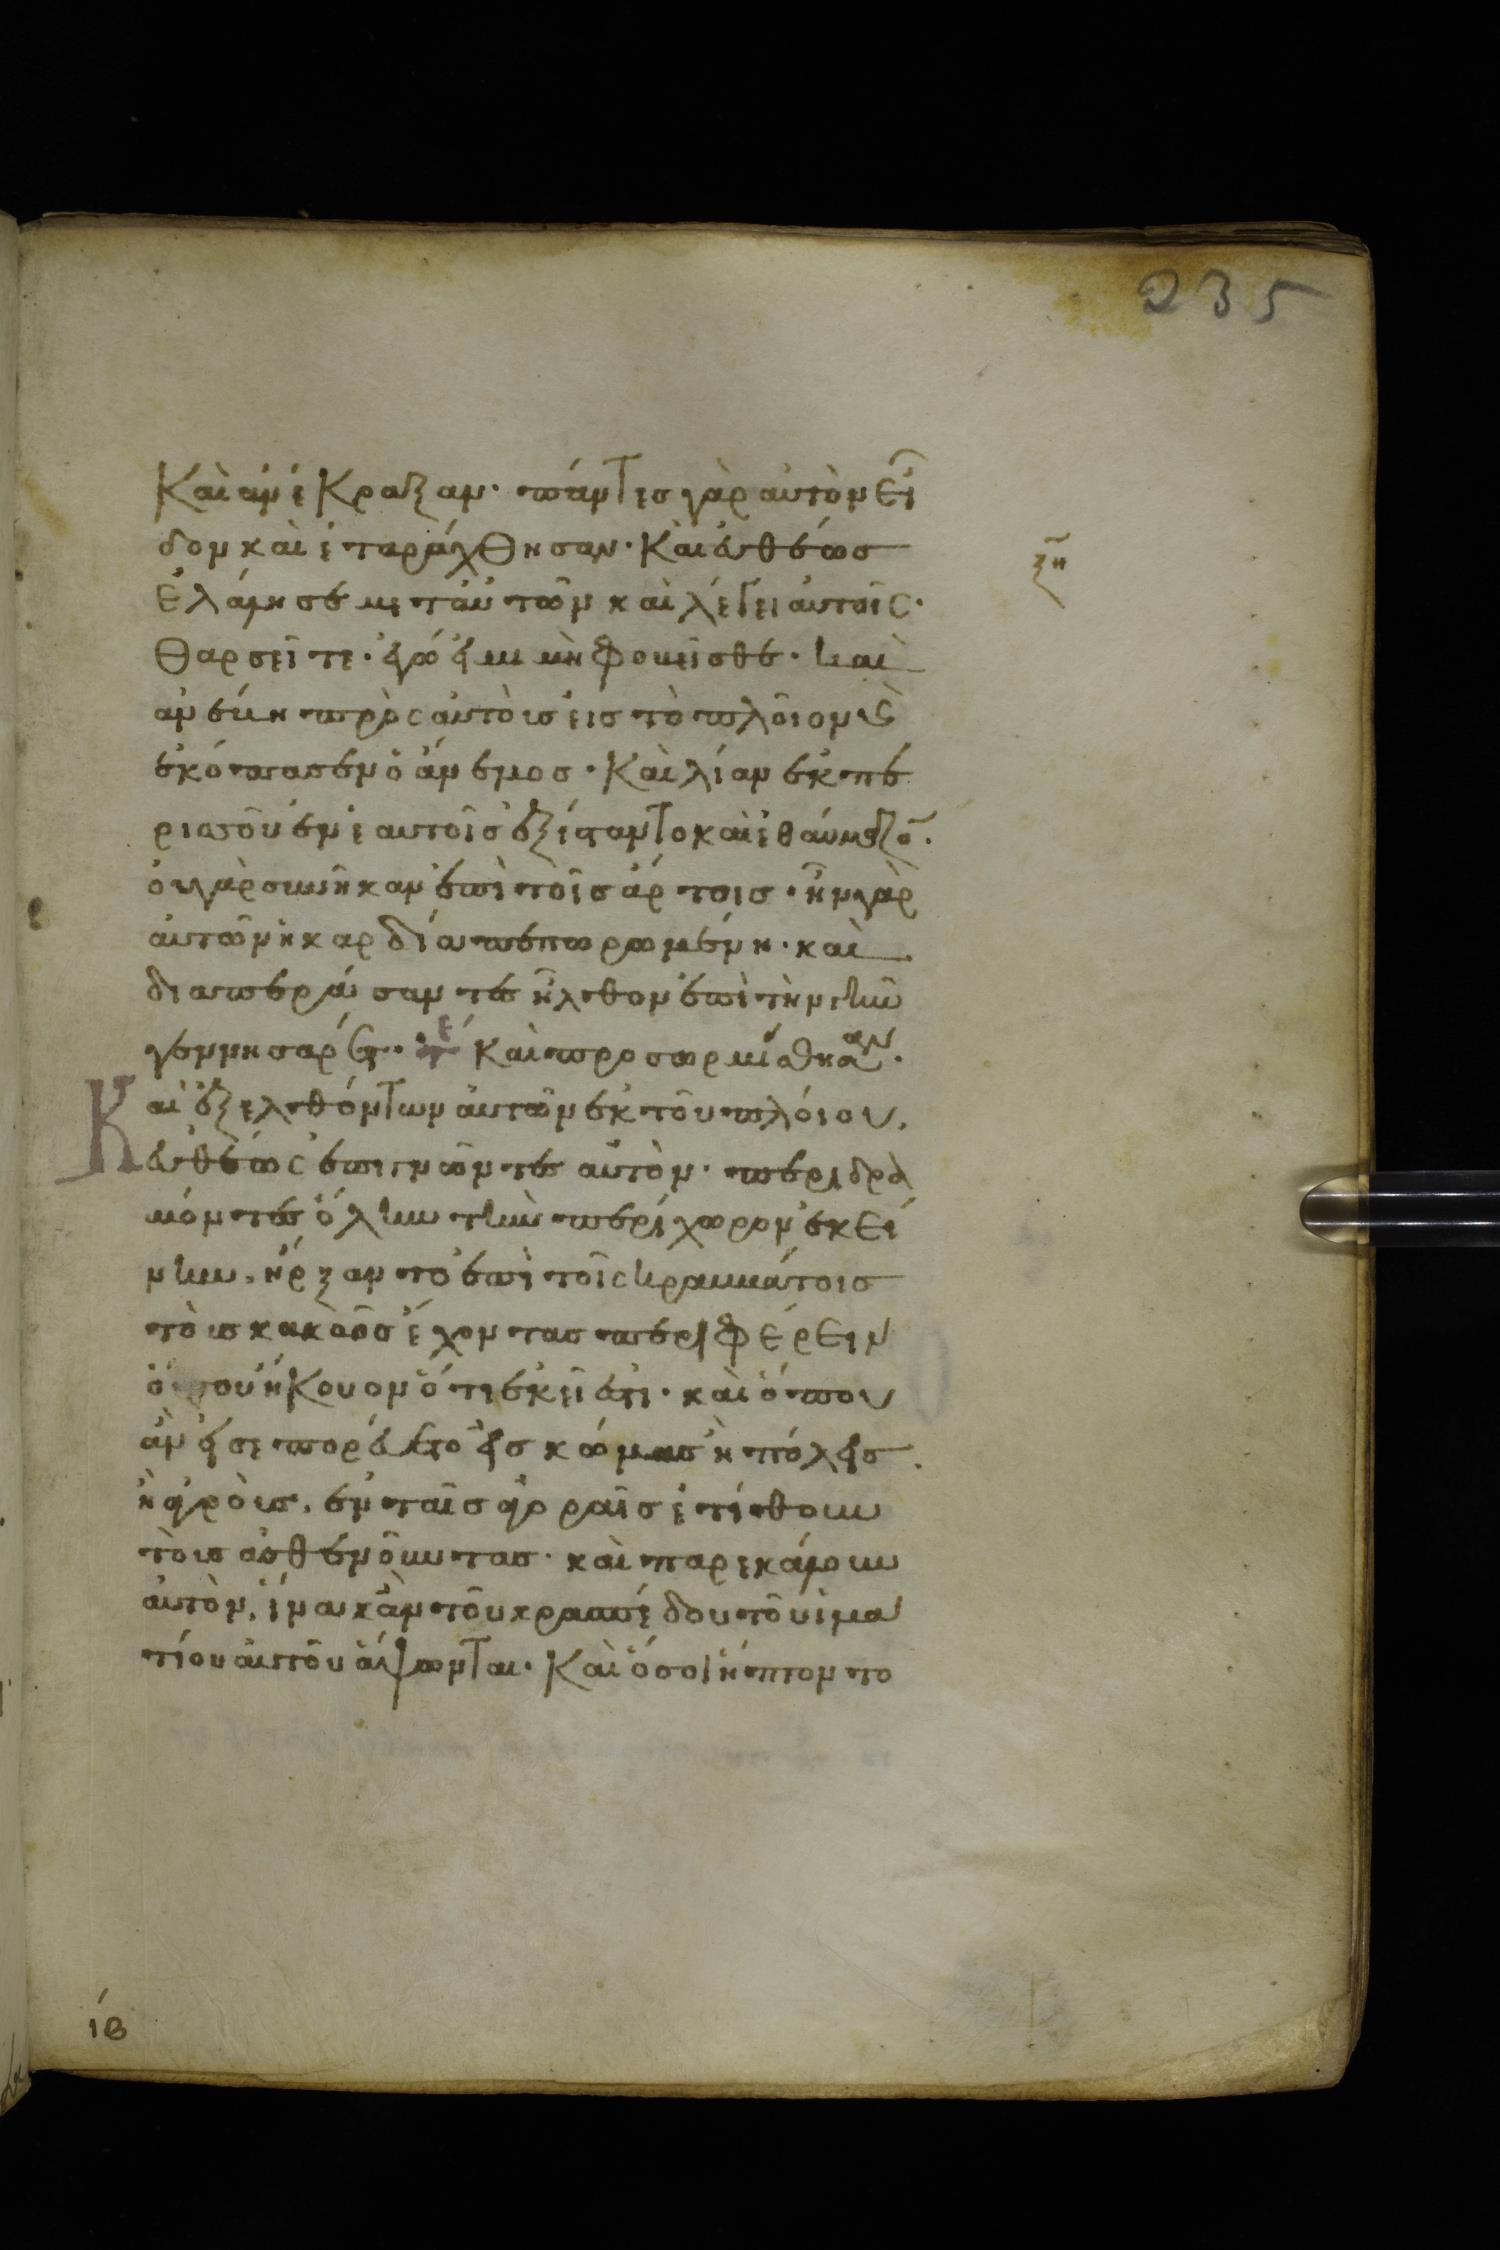 235
Καὶ ἀνέκραξαν· πάντες γὰρ αὐτὸν εἶ
δον καὶ ἐταράχθησαν· Καὶ εὐθέως
ἐλάλησε μετ' αὐτῶν καὶ λέγει αὐτοῖς·
Θαρσεῖτε· ἐγώ εἰμι μὴ φοβεῖσθε· καὶ
ἀνέβη πρὸς αὐτοὺς εἰς τὸ πλοῖον καὶ
ἐκόπασεν ὁ ἄνεμος· Καὶ λίαν ἐκ πε
ρισσοῦ ἐν ἑαυτοῖς ἐξίσταντο καὶ ἐθαύμαζο̅·
οὐ γὰρ συνῆκαν ἐπὶ τοῖς ἄρτοις· ἦν γὰρ
αὐτῶν ἡ καρδία πεπωρωμένη· καὶ
διαπεράσαντες ἦλθον ἐπὶ τὴν γῆν
γεννησαρέτ· καὶ προσωρμίσθησαν·
Καὶ ἐξελθόντων αὐτῶν ἐκ τοῦ πλοίου,
εὐθέως ἐπιγνόντες αὐτὸν· περιδρα
μόντες ὅλην τὴν περίχωρον ἐκεί
νην, ἤρξαντο ἐπὶ τοῖς κραββάτοις
τοὺς κακῶς ἔχοντας περιφέρειν
ὅπου ἤκουον ὅτι ἐκεῖ ἐστι· καὶ ὅπου
ἂν εἰσεπορεύετο εἰς κώμας ἢ πόλεις
ἢ ἀγροὺς, ἐν ταῖς ἀγοραῖς ἐτίθουν
τοὺς ἀσθενοῦντας· καὶ παρεκάλουν
αὐτὸν, ἵνα κἂν τοῦ κρασπέδου τοῦ ἱμα
τίου αὐτοῦ ἅψωνται· Καὶ ὅσοι ἥπτοντο
ξη
ιβ